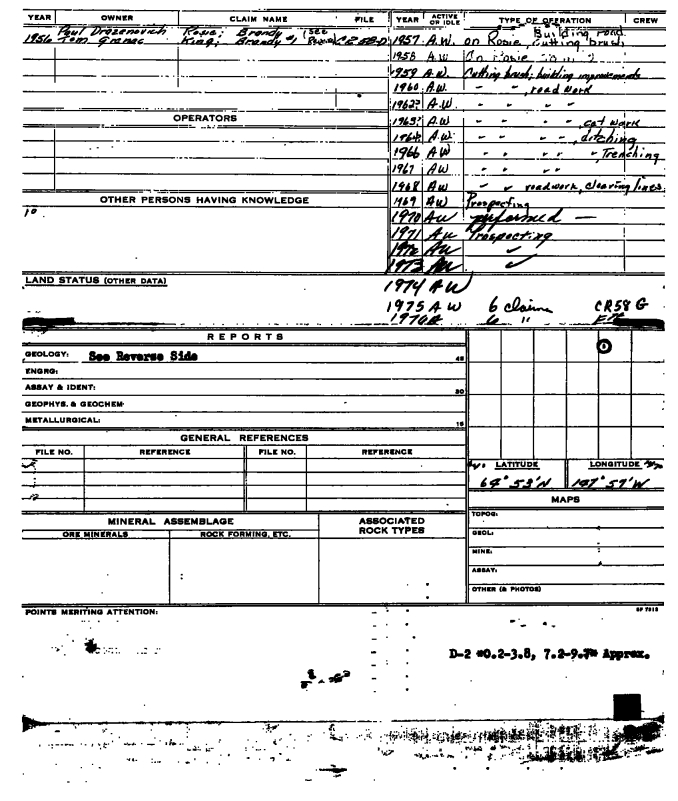 YEAR OWNER CLAIM NAME FILE YEAR ACTIVE OR IDLE TYPE OF OPERATION CREW
1956 Paul Drazenovich Rosie; Brandy (see
Tom Granac King; Brandy #1
1957 A.W. Building road
on Rosie, Cutting brush
1958 A.W. On Rosie
1959 A.W. Cutting brush; building improvements
1960 A.W. " " , road work
1962? A.W. " " " "
OPERATORS
1963? A.W. " " " " , cat work
1964? A.W. " " " " , ditching
1966 A.W " " " " , Trenching
1967 AW " " " "
1968 AW " " roadwork, clearing lines
OTHER PERSONS HAVING KNOWLEDGE
1969 AW Prospecting
10.
1970 AW performed —
1971 AW Prospecting
1972 AW "
1973 AW "
LAND STATUS (OTHER DATA)
1974 AW
1975 AW 6 claims CR58 G
1976 6 "
REPORTS
GEOLOGY: See Reverse Side 45
ENGRG:
ASSAY & IDENT: 30
GEOPHYS. & GEOCHEM:
METALLURGICAL: 15
GENERAL REFERENCES
FILE NO. REFERENCE FILE NO. REFERENCE
LATITUDE LONGITUDE
64° 53'N 147° 57'W
MAPS
TOPOG:
GEOL:
MINE:
ASSAY:
OTHER (& PHOTOS)
MINERAL ASSEMBLAGE ASSOCIATED ROCK TYPES
ORE MINERALS ROCK FORMING, ETC.
POINTS MERITING ATTENTION:
SP 7313
D-2 #0.2-3.8, 7.2-9.7# Approx.